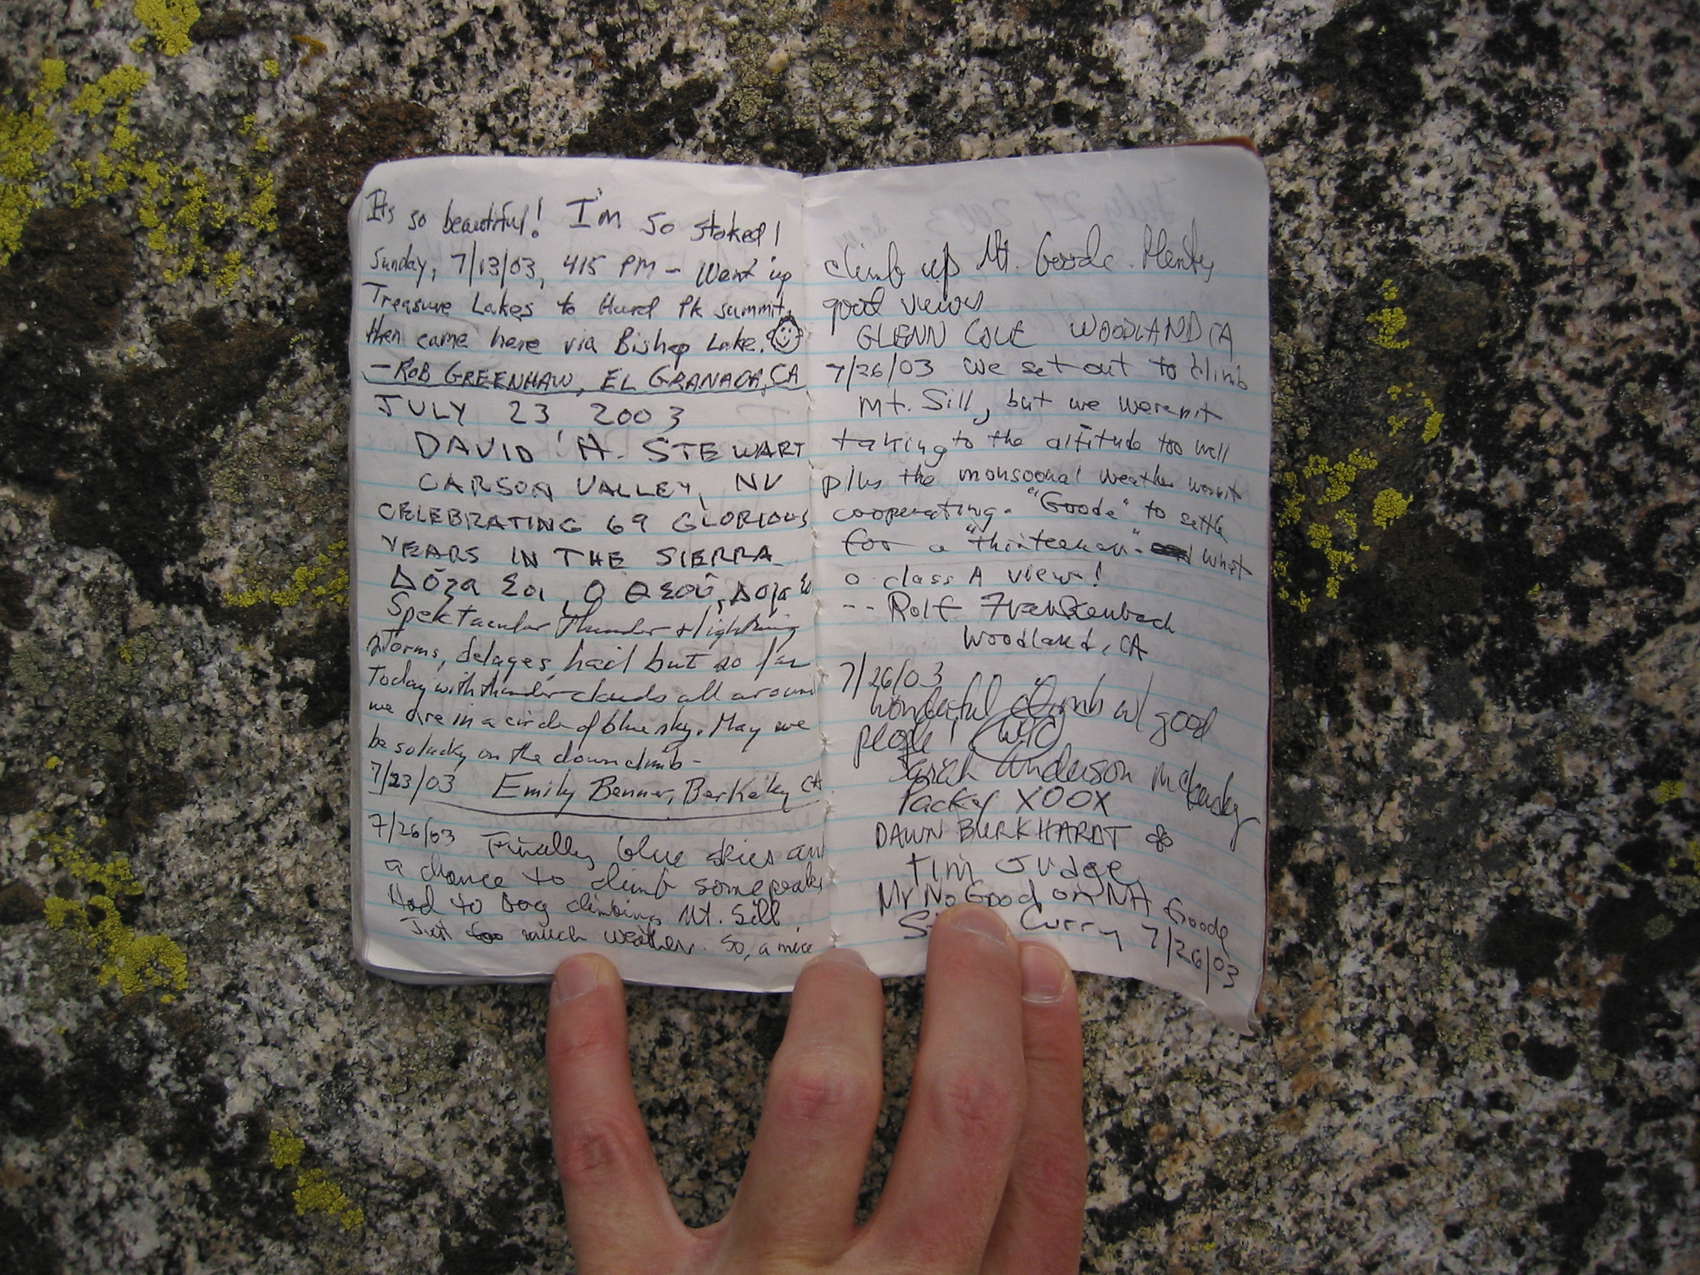 It's so beautiful! I'm so stoked!
Sunday, 7/13/03, 415 PM - Went up
Treasure Lakes to Hurd Pk summit,
then came here via Bishop Lake.
- ROB GREENHAW, EL GRANADA, CA
JULY 23 2003
DAVID A. STEWART
CARSON VALLEY, NV
CELEBRATING 69 GLORIOUS
YEARS IN THE SIERRA
Δόζα Σοι, Ο Θεου, Δοζα
Spektacular thunder + lightning
storms, delages, hail but so far
Today with thunder clouds all around
we are in a circle of blue sky. May we
be so lucky on the down climb -
7/23/03 Emily Benner, Berkeley CA
7/26/03 Finally blue skies and
a chance to climb some peaks
Had to bag climbing Mt. Sill
Just too much weather. So, a nice
climb up Mt. Goode. Plenty
good views
GLENN COLE WOODLAND CA
7/26/03 we set out to climb
Mt. Sill, but we weren't
taking to the altitude too well
plus the monsoonal weather wasn't
cooperating. "Goode" to settle
for a "thirteener" what
a class A view!
-- Rolf Frankenbach
Woodland, CA
7/26/03
Wonderful climb w/ good
people
Sarah Anderson
Packy XOOX
DAWN BURKHARDT
Tim Judge
Mr No Good on Mt Goode
Curry 7/26/03